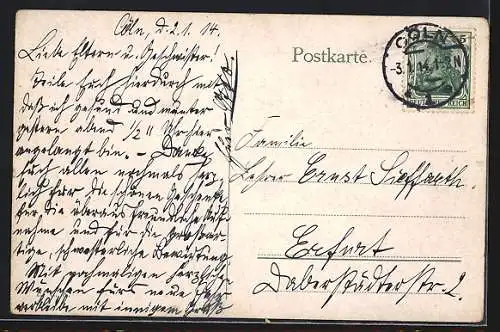 Cöln, d. 2.1.14.
Liebe Eltern u. Geschwister!
Teile Euch hierdurch mit
daß ich gesund und munter
gestern abend 1/2 11 Uhr hier
angelangt bin. – Danke
Euch allen nochmals herz-
lich für die schönen Geschenke
für die überaus freundliche Auf-
nahme und für die großar-
tige, schwesterliche Bewirtung.
Mit nochmaligen herzlichen
Wünschen fürs neue Jahr
verbleibe mit innigem Gruß
Postkarte.
CÖLN
-3.1.14.
5
REICH
Familie
Lehrer Ernst Sieffarth.
Erfurt
Daberstädterstr. 2.